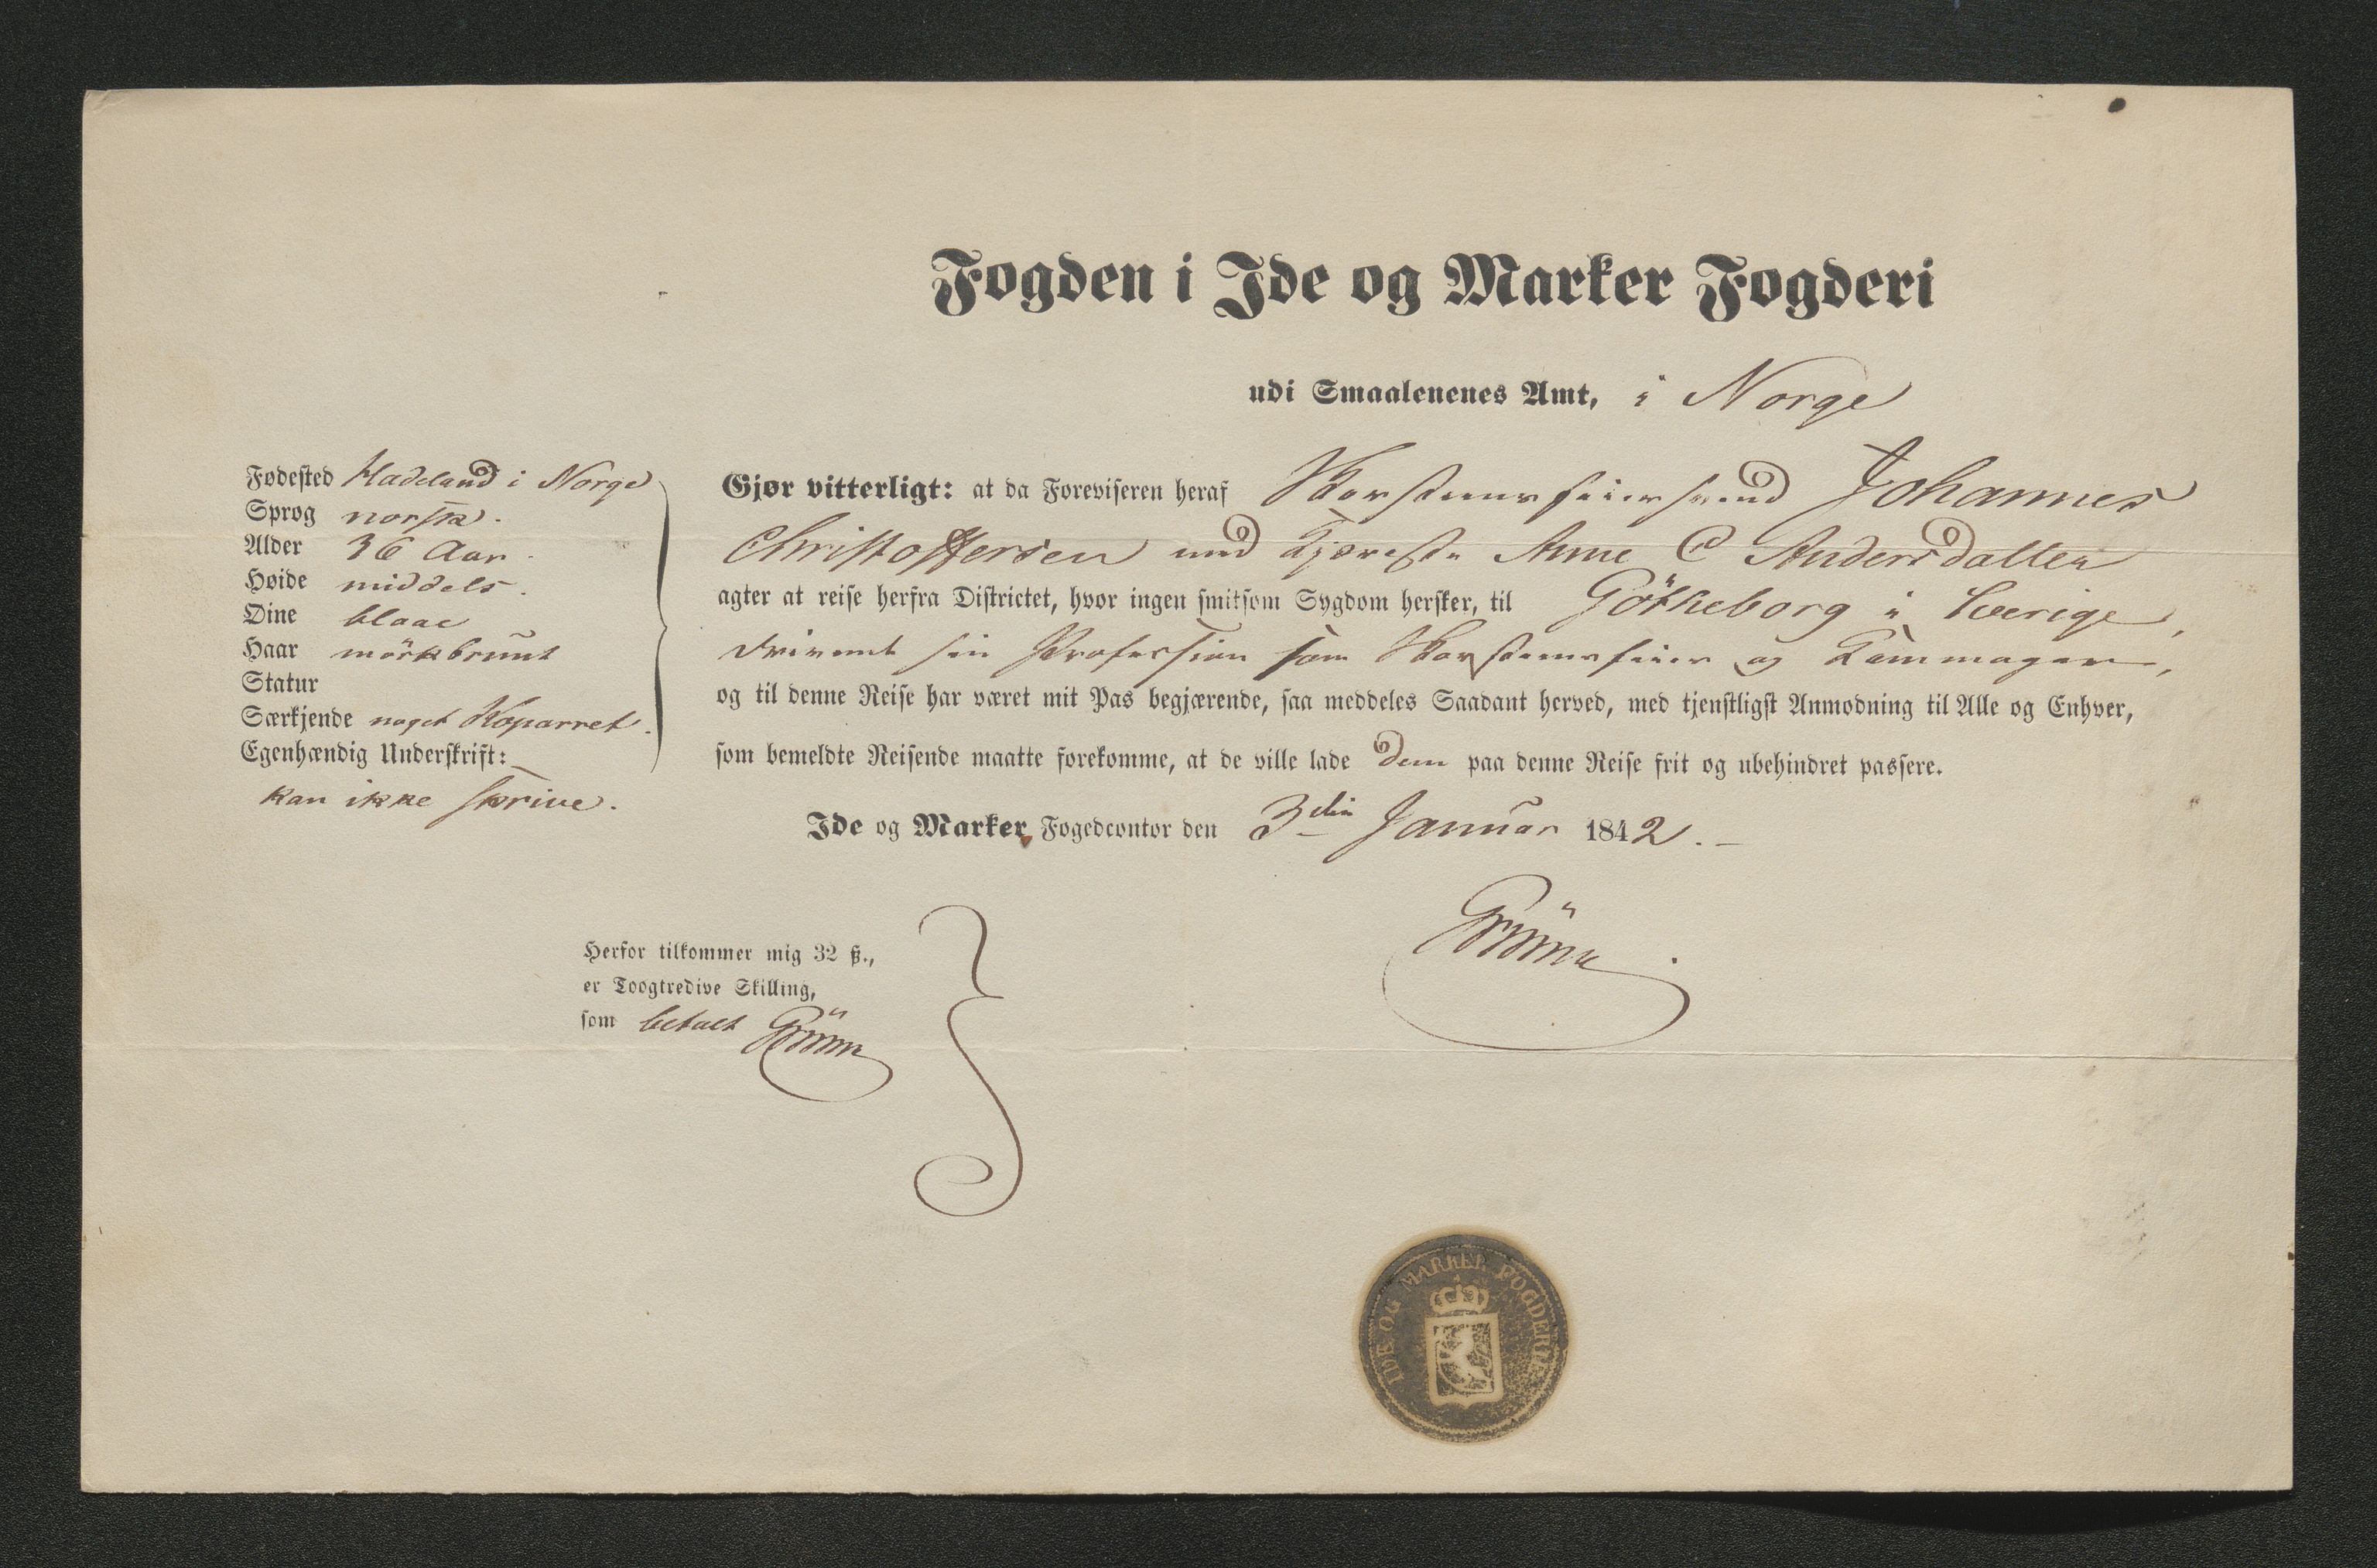 Fogden i Ide og Marker Fogderi
udi Smaalenenes Amt, i Norge
Fødested Hadeland i Norge
Sprog norsk.
Alder 36 Aar.
Høide middels.
Øine blaae
Haar mörkbrunt
Statur
Særkjende noget Koparret.
Egenhændig Underskrift:
kan ikke skrive.
Gjør vitterligt: at da Foreviseren heraf Skorsteensfeiersvend Johannes
Christoffersen med Kjæreste Anne C Andersdatter
agter at reise herfra Districtet, hvor ingen smitsom Sygdom hersker, til Götheborg i Sverige,
drivende sin Profession som Skorsteensfeier og Kammager,
og til denne Reise har været mit Pas begjærende, saa meddeles Saadant herved, med tjenstligst Anmodning til Alle og Enhver,
som bemeldte Reisende maatte forekomme, at de ville lade dem paa denne Reise frit og ubehindret passere.
Ide og Marker Fogedcontor den 3die Januar 1842.-
Herfor tilkommer mig 32 ß.,
er Toogtredive Skilling,
som betalt
IDE OG MARKER FOGDERIE